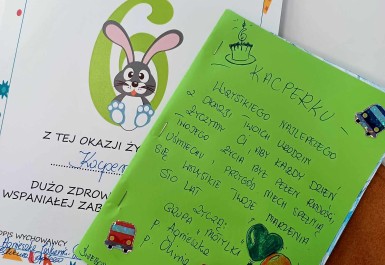 6
Z TEJ OKAZJI ŻY
Kacper
DUŻO ZDROW
WSPANIAŁEJ ZAB
OPIS WYCHOWAWCY
Agnieszka
6
KACPERKU -
WSZYSTKIEGO NAJLEPSZEGO
Z OKAZJI TWOICH URODZIN
ŻYCZYMY CI ABY KAŻDY DZIEŃ
TWOJEGO ŻYCIA BYŁ PEŁEN RADOŚCI,
UŚMIECHU I PRZYGÓD NIECH SPEŁNIĄ
SIĘ WSZYSTKIE TWOJE MARZENIA
STO LAT
ŻYCZĄ:
GRUPA
P. Agnieszka
P.